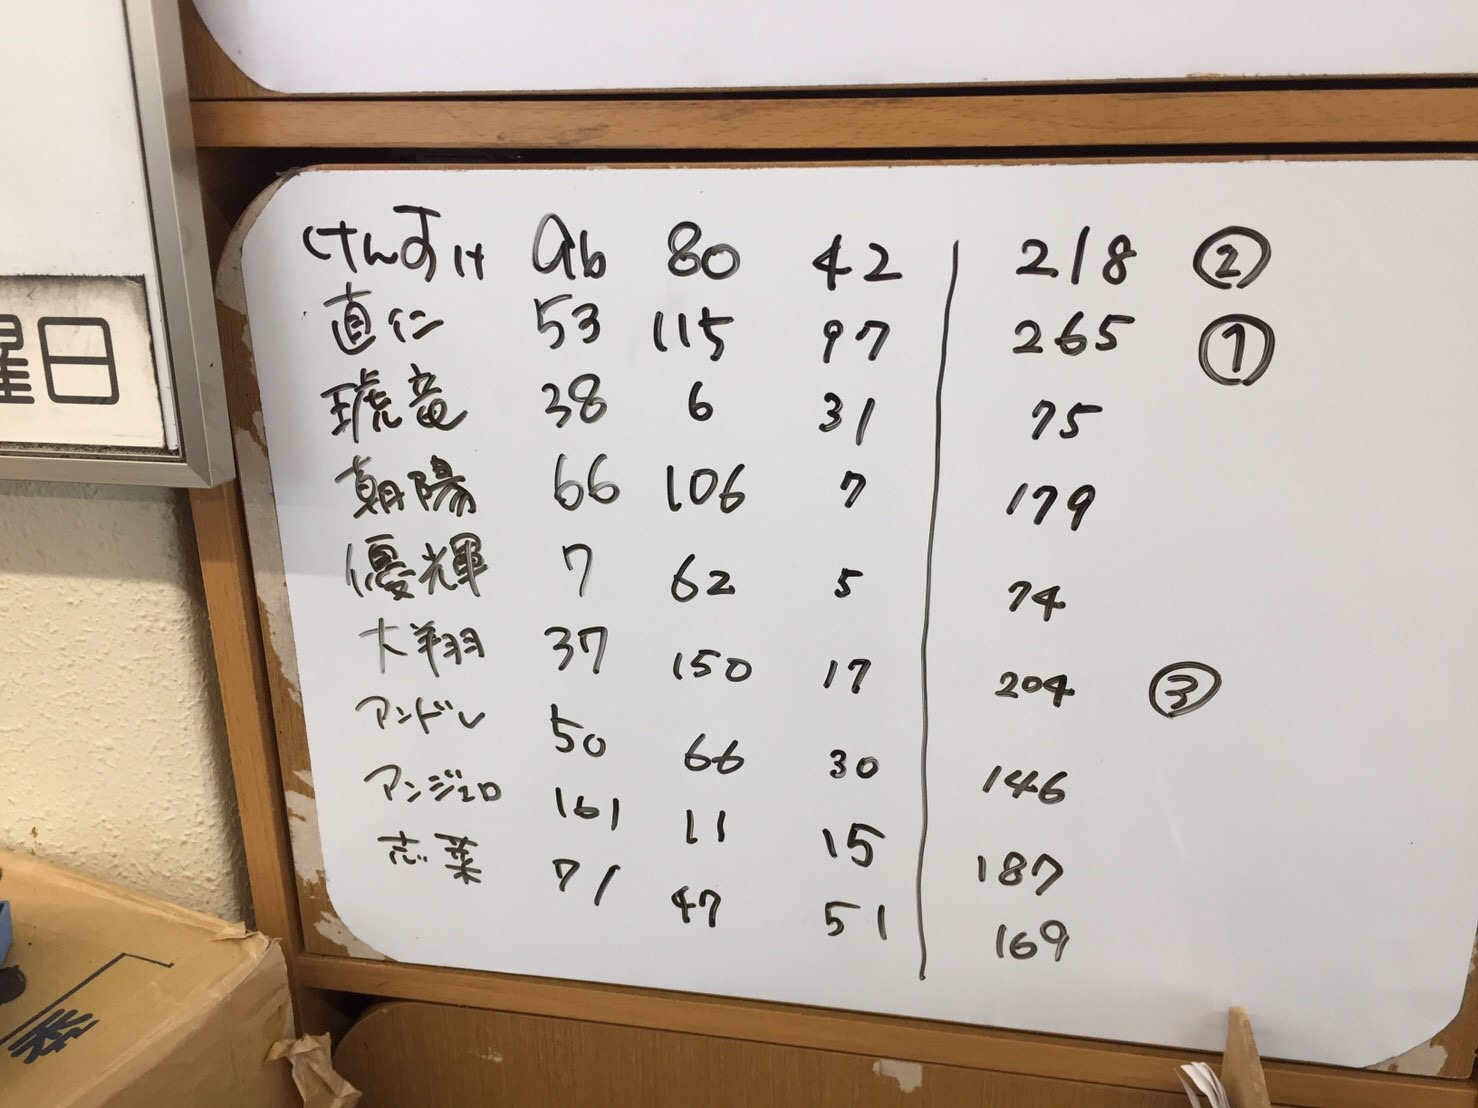 曜日
けんすけ 96 80 42 218 ②
直仁 53 115 97 265 ①
琥竜 38 6 31 75
朝陽 66 106 7 179
優輝 7 62 5 74
大翔 37 150 17 204 ③
アンドレ 50 66 30 146
アンジェロ 161 11 15 187
志葉 71 47 51 169